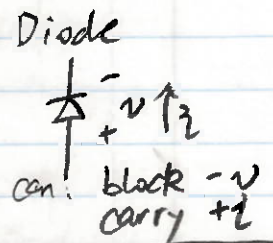 Diode
-
v ↑ i
+
can: block -v
carry +i